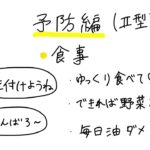 予防編 (Ⅱ型
食事
を付けようね
・ゆっくり食べて
・できれば野菜
んばろ〜
・毎日油ダメ